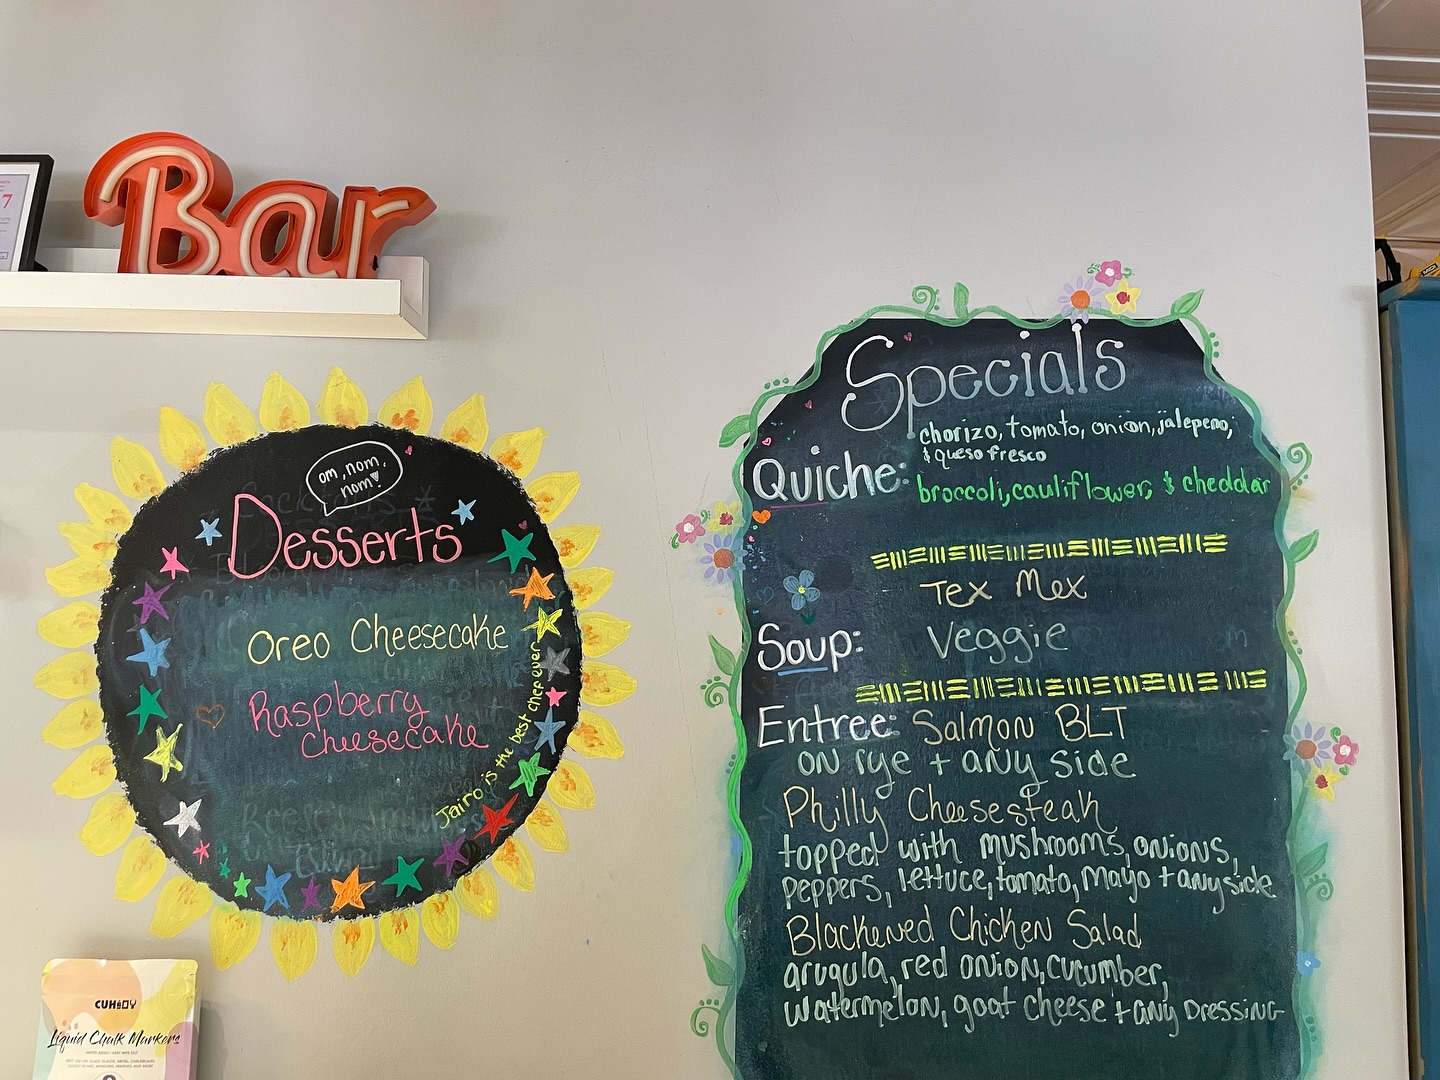 7
Bar
om, nom,
nom!
Desserts
Oreo Cheesecake
Raspberry
Cheesecake
Jairo is the best chef ever
CUHIOY
Liquid Chalk Markers
Specials
Quiche:
chorizo, tomato, onion, jalepeno,
& queso fresco
broccoli, cauliflower, & cheddar
Soup:
Tex Mex
Veggie
Entree: Salmon BLT
on rye + any side
Philly Cheesesteak
topped with mushrooms, onions,
peppers, lettuce, tomato, mayo + any side
Blackened Chicken Salad
arugula, red onion, cucumber,
watermelon, goat cheese + any Dressing